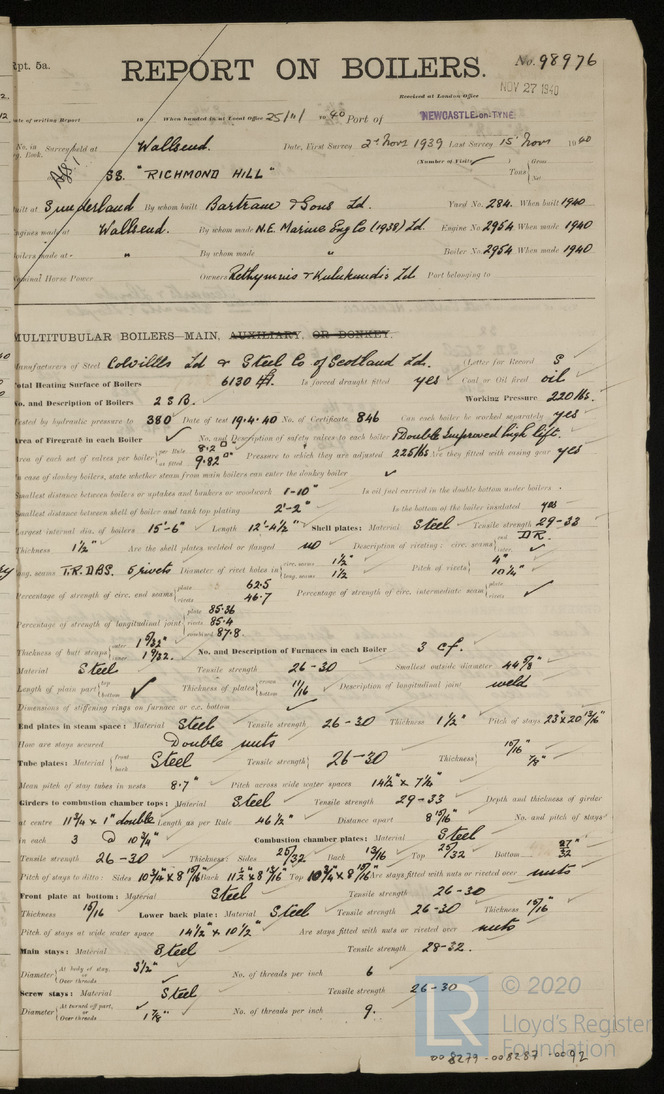 Rpt. 5a.
REPORT ON BOILERS.
No. 98976
Received at London Office NOV 27 1940
Date of writing Report 19 When handed in at Local Office 25/11/ 1940 Port of NEWCASTLE-on-TYNE
No. in Reg. Book. Survey held at Wallsend. Date, First Survey 2nd Novr 1939 Last Survey 15 Novr 1940
(Number of Visits
on SS. "RICHMOND HILL" Tons { Gross Net
Built at Sunderland By whom built Bartram & Sons Ld. Yard No. 284. When built 1940
Engines made at Wallsend. By whom made N.E. Marine Eng Co (1938) Ld. Engine No. 2954 When made 1940
Boilers made at " By whom made " Boiler No. 2954 When made 1940
Nominal Horse Power Owners Rethymnis & Kulukundis Ld Port belonging to
MULTITUBULAR BOILERS—MAIN, AUXILIARY, OR DONKEY.
Manufacturers of Steel Colvilles Ld & Steel Co of Scotland Ld. (Letter for Record S
Total Heating Surface of Boilers 6130 Is forced draught fitted yes Coal or Oil fired oil
No. and Description of Boilers 2 S B. Working Pressure 220 lbs.
Tested by hydraulic pressure to 380 Date of test 19.4.40 No. of Certificate 846 Can each boiler be worked separately yes
Area of Firegrate in each Boiler ✓ No. and Description of safety valves to each boiler 1 Double Improved high lift.
Area of each set of valves per boiler { per Rule 8.2 as fitted 9.82 Pressure to which they are adjusted 225 lbs Are they fitted with easing gear yes
In case of donkey boilers, state whether steam from main boilers can enter the donkey boiler ✓
Smallest distance between boilers or uptakes and bunkers or woodwork 1'-10" Is oil fuel carried in the double bottom under boilers
Smallest distance between shell of boiler and tank top plating 2'-2" Is the bottom of the boiler insulated yes
Largest internal dia. of boilers 15'-6" Length 12'-4½" Shell plates: Material Steel Tensile strength 29-33
Thickness 1½" Are the shell plates welded or flanged no Description of riveting: circ. seams { end DR. inter. ✓
long. seams T.R.DBS. 5 rivets Diameter of rivet holes in { circ. seams 1½" long. seams 1½ Pitch of rivets { 4" 10¼"
Percentage of strength of circ. end seams { plate 62.5 rivets 46.7 Percentage of strength of circ. intermediate seam { plate rivets ✓
Percentage of strength of longitudinal joint { plate 85.36 rivets 85.4 combined 87.8.
Thickness of butt straps { outer inner No. and Description of Furnaces in each Boiler 3 cf.
Material Steel Tensile strength 26-30 Smallest outside diameter 44⅝"
Length of plain part { top bottom ✓ Thickness of plates { crown bottom 11/16 Description of longitudinal joint weld
Dimensions of stiffening rings on furnace or c.c. bottom ✓
End plates in steam space: Material Steel Tensile strength 26-30 Thickness 1½" Pitch of stays 23"x20 13/16"
How are stays secured Double nuts
Tube plates: Material { front back Steel Tensile strength { 26-30 Thickness { 15/16" ⅞"
Mean pitch of stay tubes in nests 8.7" Pitch across wide water spaces 14½" x 7¼"
Girders to combustion chamber tops: Material Steel Tensile strength 29-33 Depth and thickness of girder
at centre 11¾ x 1" double Length as per Rule 46½" Distance apart 8 15/16" No. and pitch of stays
in each 3 @ 10¾" Combustion chamber plates: Material Steel
Tensile strength 26-30 Thickness: Sides 25/32 Back 13/16 Top 25/32 Bottom 27/32
Pitch of stays to ditto: Sides 10¾" x 8 15/16" Back Top 10¾" x 8 15/16" Are stays fitted with nuts or riveted over nuts
Front plate at bottom: Material Steel Tensile strength 26-30
Thickness 15/16 Lower back plate: Material Steel Tensile strength 26-30 Thickness 15/16"
Pitch of stays at wide water space 14½" x 10½" Are stays fitted with nuts or riveted over nuts
Main stays: Material Steel Tensile strength 28-32.
Diameter { At body of stay, or Over threads 3½" ✓ No. of threads per inch 6
Screw stays: Material Steel Tensile strength 26-30
Diameter { At turned off part, or Over threads ✓ 1⅞" No. of threads per inch 9.
LR
© 2020
Lloyd's Register
Foundation
008279-008287-0092